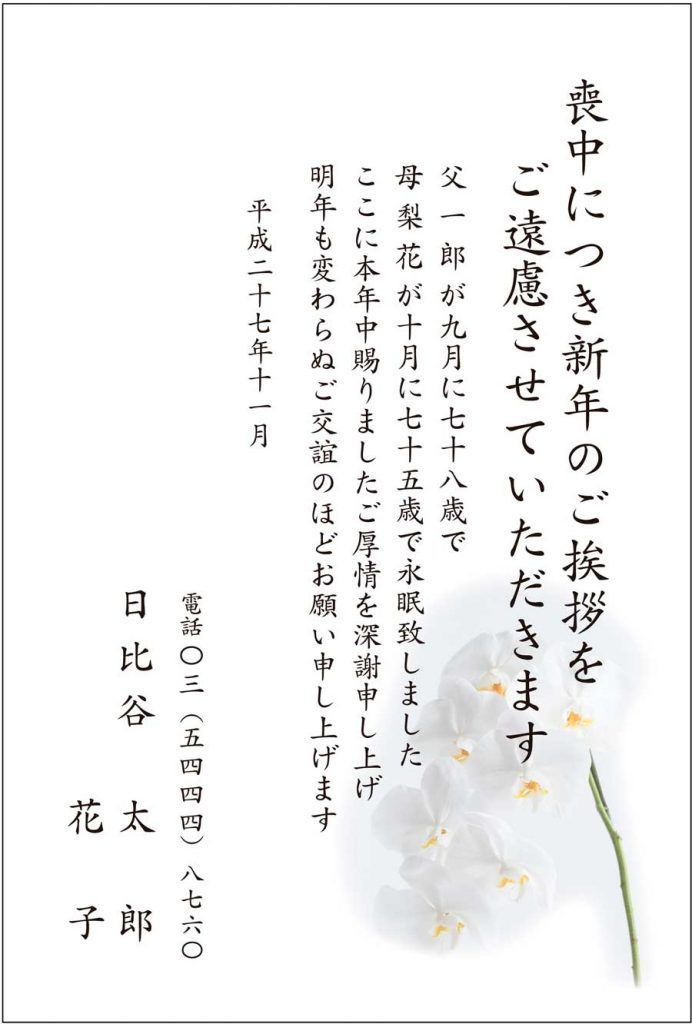 喪中につき新年のご挨拶を
ご遠慮させていただきます
父一郎が九月に七十八歳で
母梨花が十月に七十五歳で永眠致しました
ここに本年中賜りましたご厚情を深謝申し上げ
明年も変わらぬご交誼のほどお願い申し上げます
平成二十七年十一月
電話〇三(五四四四)八七六〇
日比谷 太郎
花子